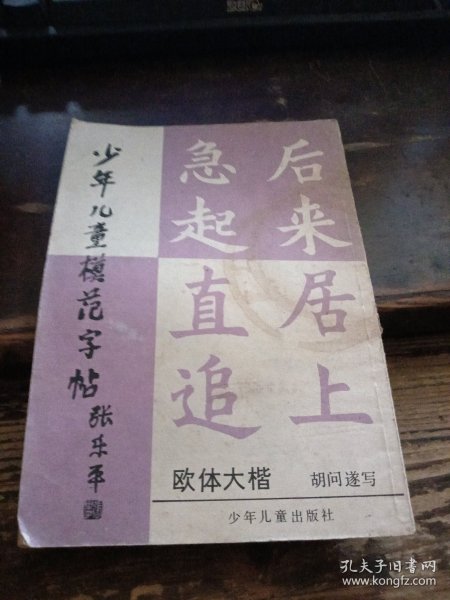 少年儿童模范字帖
张乐平
后来居上
急起直追
欧体大楷 胡问遂写
少年儿童出版社
孔夫子旧书网
www.kongfz.com